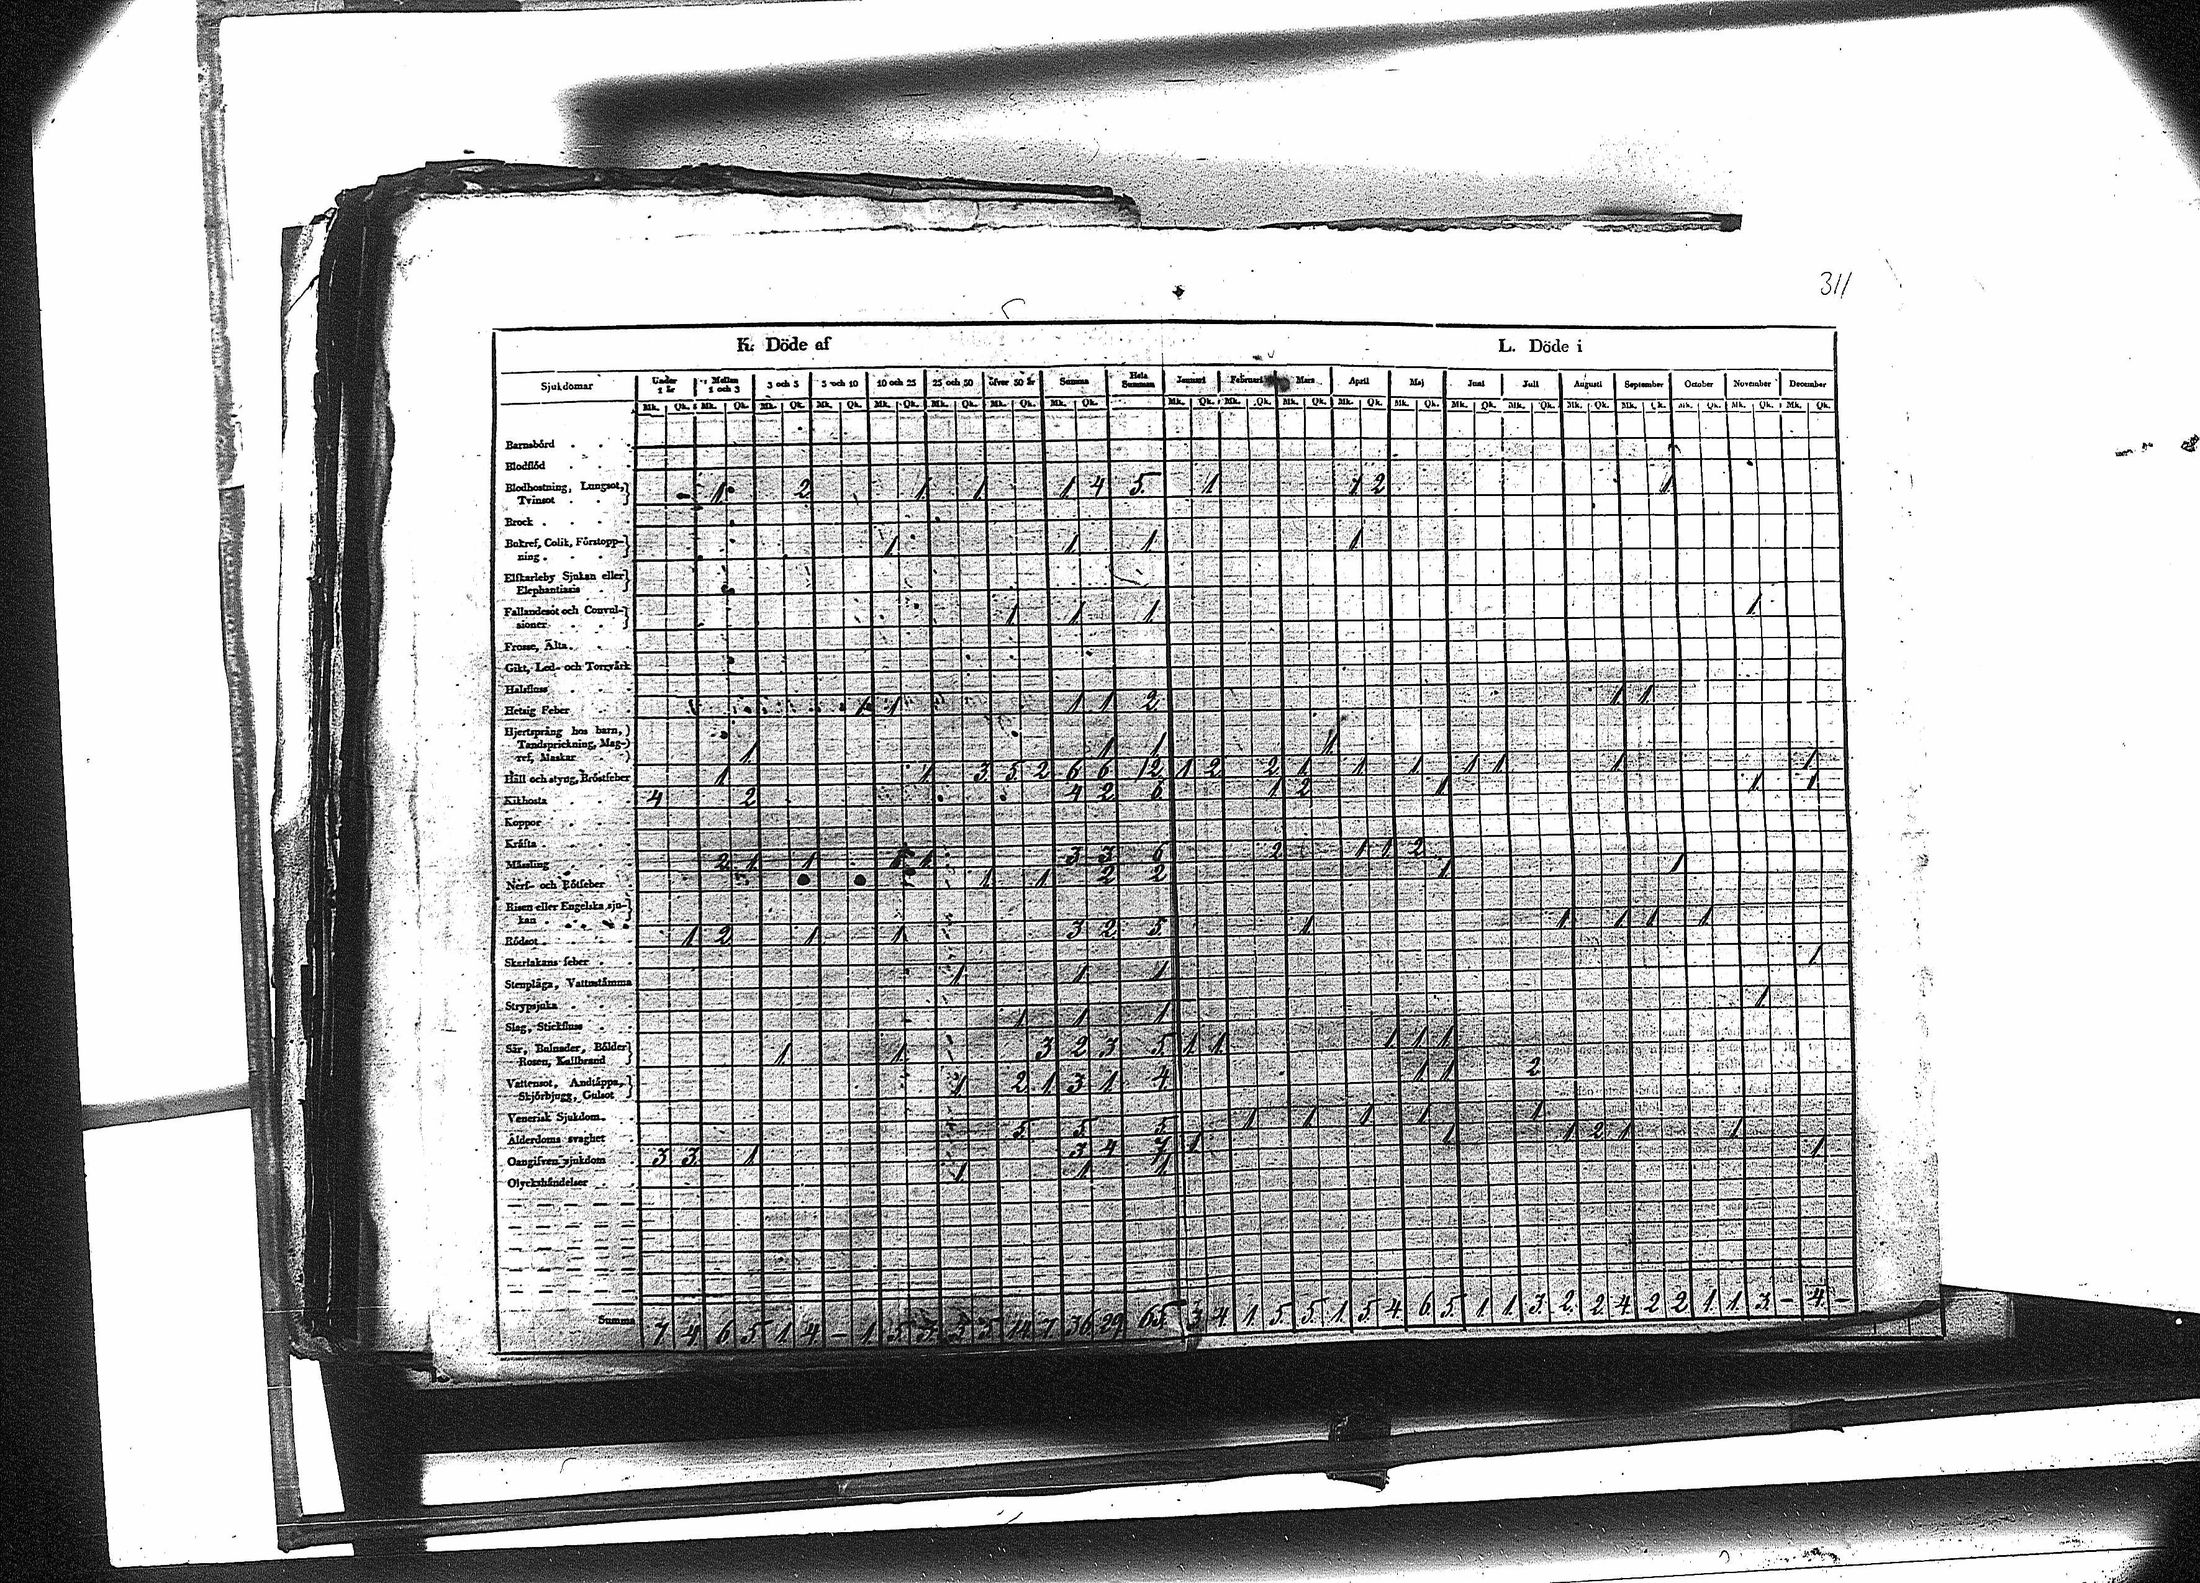 311
K. Döde af L. Döde i
Sjukdomar Under 1 år Mellan 1 och 3 3 och 5 5 och 10 10 och 25 25 och 50 öfver 50 år Summa Hela Summan Januari Februari Mars April Maj Juni Juli Augusti September October November December
Mk. Qk. Mk. Qk. Mk. Qk. Mk. Qk. Mk. Qk. Mk. Qk. Mk. Qk. Mk. Qk. Mk. Qk. Mk. Qk. Mk. Qk. Mk. Qk. Mk. Qk. Mk. Qk. Mk. Qk. Mk. Qk. Mk. Qk. Mk. Qk. Mk. Qk. Mk. Qk.
Barnsbörd
Blodflöd
Blodhostning, Lungsot, 1 2 1 1 1 4 5 1 1 2 1
Tvinsot
Brock
Bukref, Colik, Förstopp- 1 1 1 1
ning
Elfkarleby Sjukan eller
Elephantiasis
Fallandesot och Convul- 1 1 1 1
sioner
Frosse, Älta
Gikt, Led- och Torrvärk
Halsfluss
Hetsig Feber 1 1 1 1 2 1 1
Hjertsprång hos barn,
Tandsprickning, Mag- 1 1 1 1
ref, Maskar
Håll och styng, Bröstfeber 1 1 3 5 2 6 6 12 1 2 2 1 1 1 1 1 1 1
Kikhosta 4 2 4 2 6 1 2 1 1 1
Koppor
Kräfta
Mässling 2 1 1 1 1 3 3 6 2 1 1 2
Nerf- och Rötfeber 1 1 2 2 1 1
Risen eller Engelska sju-
kan
Rödsot 1 2 1 1 3 2 5 1 1 1 1 1
Skarlakans feber
Stenplåga, Vattustämma 1 1 1 1
Strypsjuka
Slag, Stickfluss 1 1 1 1
Sår, Bulnader, Bölder 1 1 3 2 3 5 1 1 1 1 1
Rosen, Kallbrand
Vattensot, Andtäppa, 1 2 1 3 1 4 1 1 2
Skjörbjugg, Gulsot
Venerisk Sjukdom
Ålderdoms svaghet 5 5 5 1 1 1 1 1
Oangifven sjukdom 3 3 1 3 4 7 1 1 1 2 1 1
Olyckshändelser 1 1 1 1
Summa 7 4 6 5 1 4 - 1 3 3 3 5 14 7 36 29 65 3 4 1 5 5 1 5 4 6 5 1 1 3 2 2 4 2 2 1 1 3 - 4 -